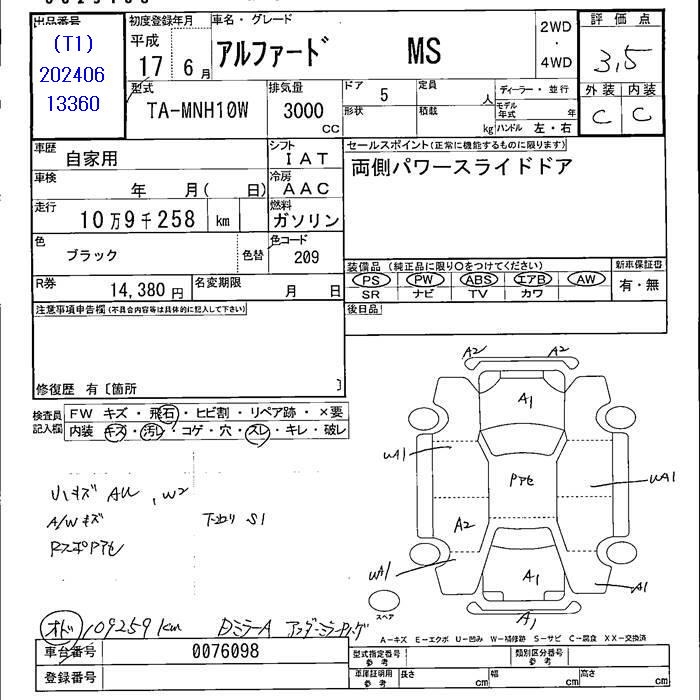 出品番号
(T1)
202406
13360
初度登録年月
平成
17 6月
車名・グレード
アルファード MS
2WD
・
4WD
評価点
3,5
外装 内装
C C
型式
TA-MNH10W
排気量
3000
CC
ドア 5
形状
定員 人
積載 kg
ディーラー・並行
モデル年式 年
ハンドル 左・右
車歴
自家用
シフト
IAT
セールスポイント(正常に機能するものに限ります)
両側パワースライドドア
車検
年 月( 日)
冷房
AAC
走行
10万9千258 km
燃料
ガソリン
色
ブラック
色替
色コード
209
装備品 (純正品に限り○をつけてください)
PS PW ABS エアB AW
SR ナビ TV カワ
新車保証書
有・無
R券
14,380円
名変期限
月 日
後日品
注意事項申告欄(不具合内容等は具体的に記入して下さい)
修復歴 有〔箇所 〕
検査員記入欄
FW キズ・飛石・ヒビ割・リペア跡・×要
内装 キズ・汚レ・コゲ・穴・スレ・キレ・破レ
A2 A2
A1
UA1
Pアセ
UA1
A2
UA1
A1
A1
A1
スペア
小キズ AU, W2
A/Wキズ
下回り S1
RスポPアセ
オド 109259km DミラーA アンダーミラーPハゲ
A-キズ E-エクボ U-凹み W-補修跡 S-サビ C-腐食 XX-交換済
車台番号 0076098
登録番号
型式指定番号
参考
類別区分番号
参考
車庫証明用
参考
長さ cm
幅 cm
高さ cm